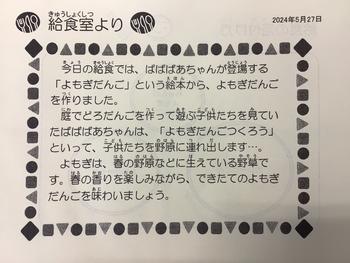 給食室より
2024年5月27日
今日の給食では、ばばばあちゃんが登場する
「よもぎだんご」という絵本から、よもぎだんご
を作りました。
庭でどろだんごを作って遊ぶ子供たちを見てい
たばばばあちゃんは、「よもぎだんごつくろう」
といって、子供たちを野原に連れ出します…。
よもぎは、春の野原などに生えている野草で
す。春の香りを楽しみながら、できたてのよもぎ
だんごを味わいましょう。